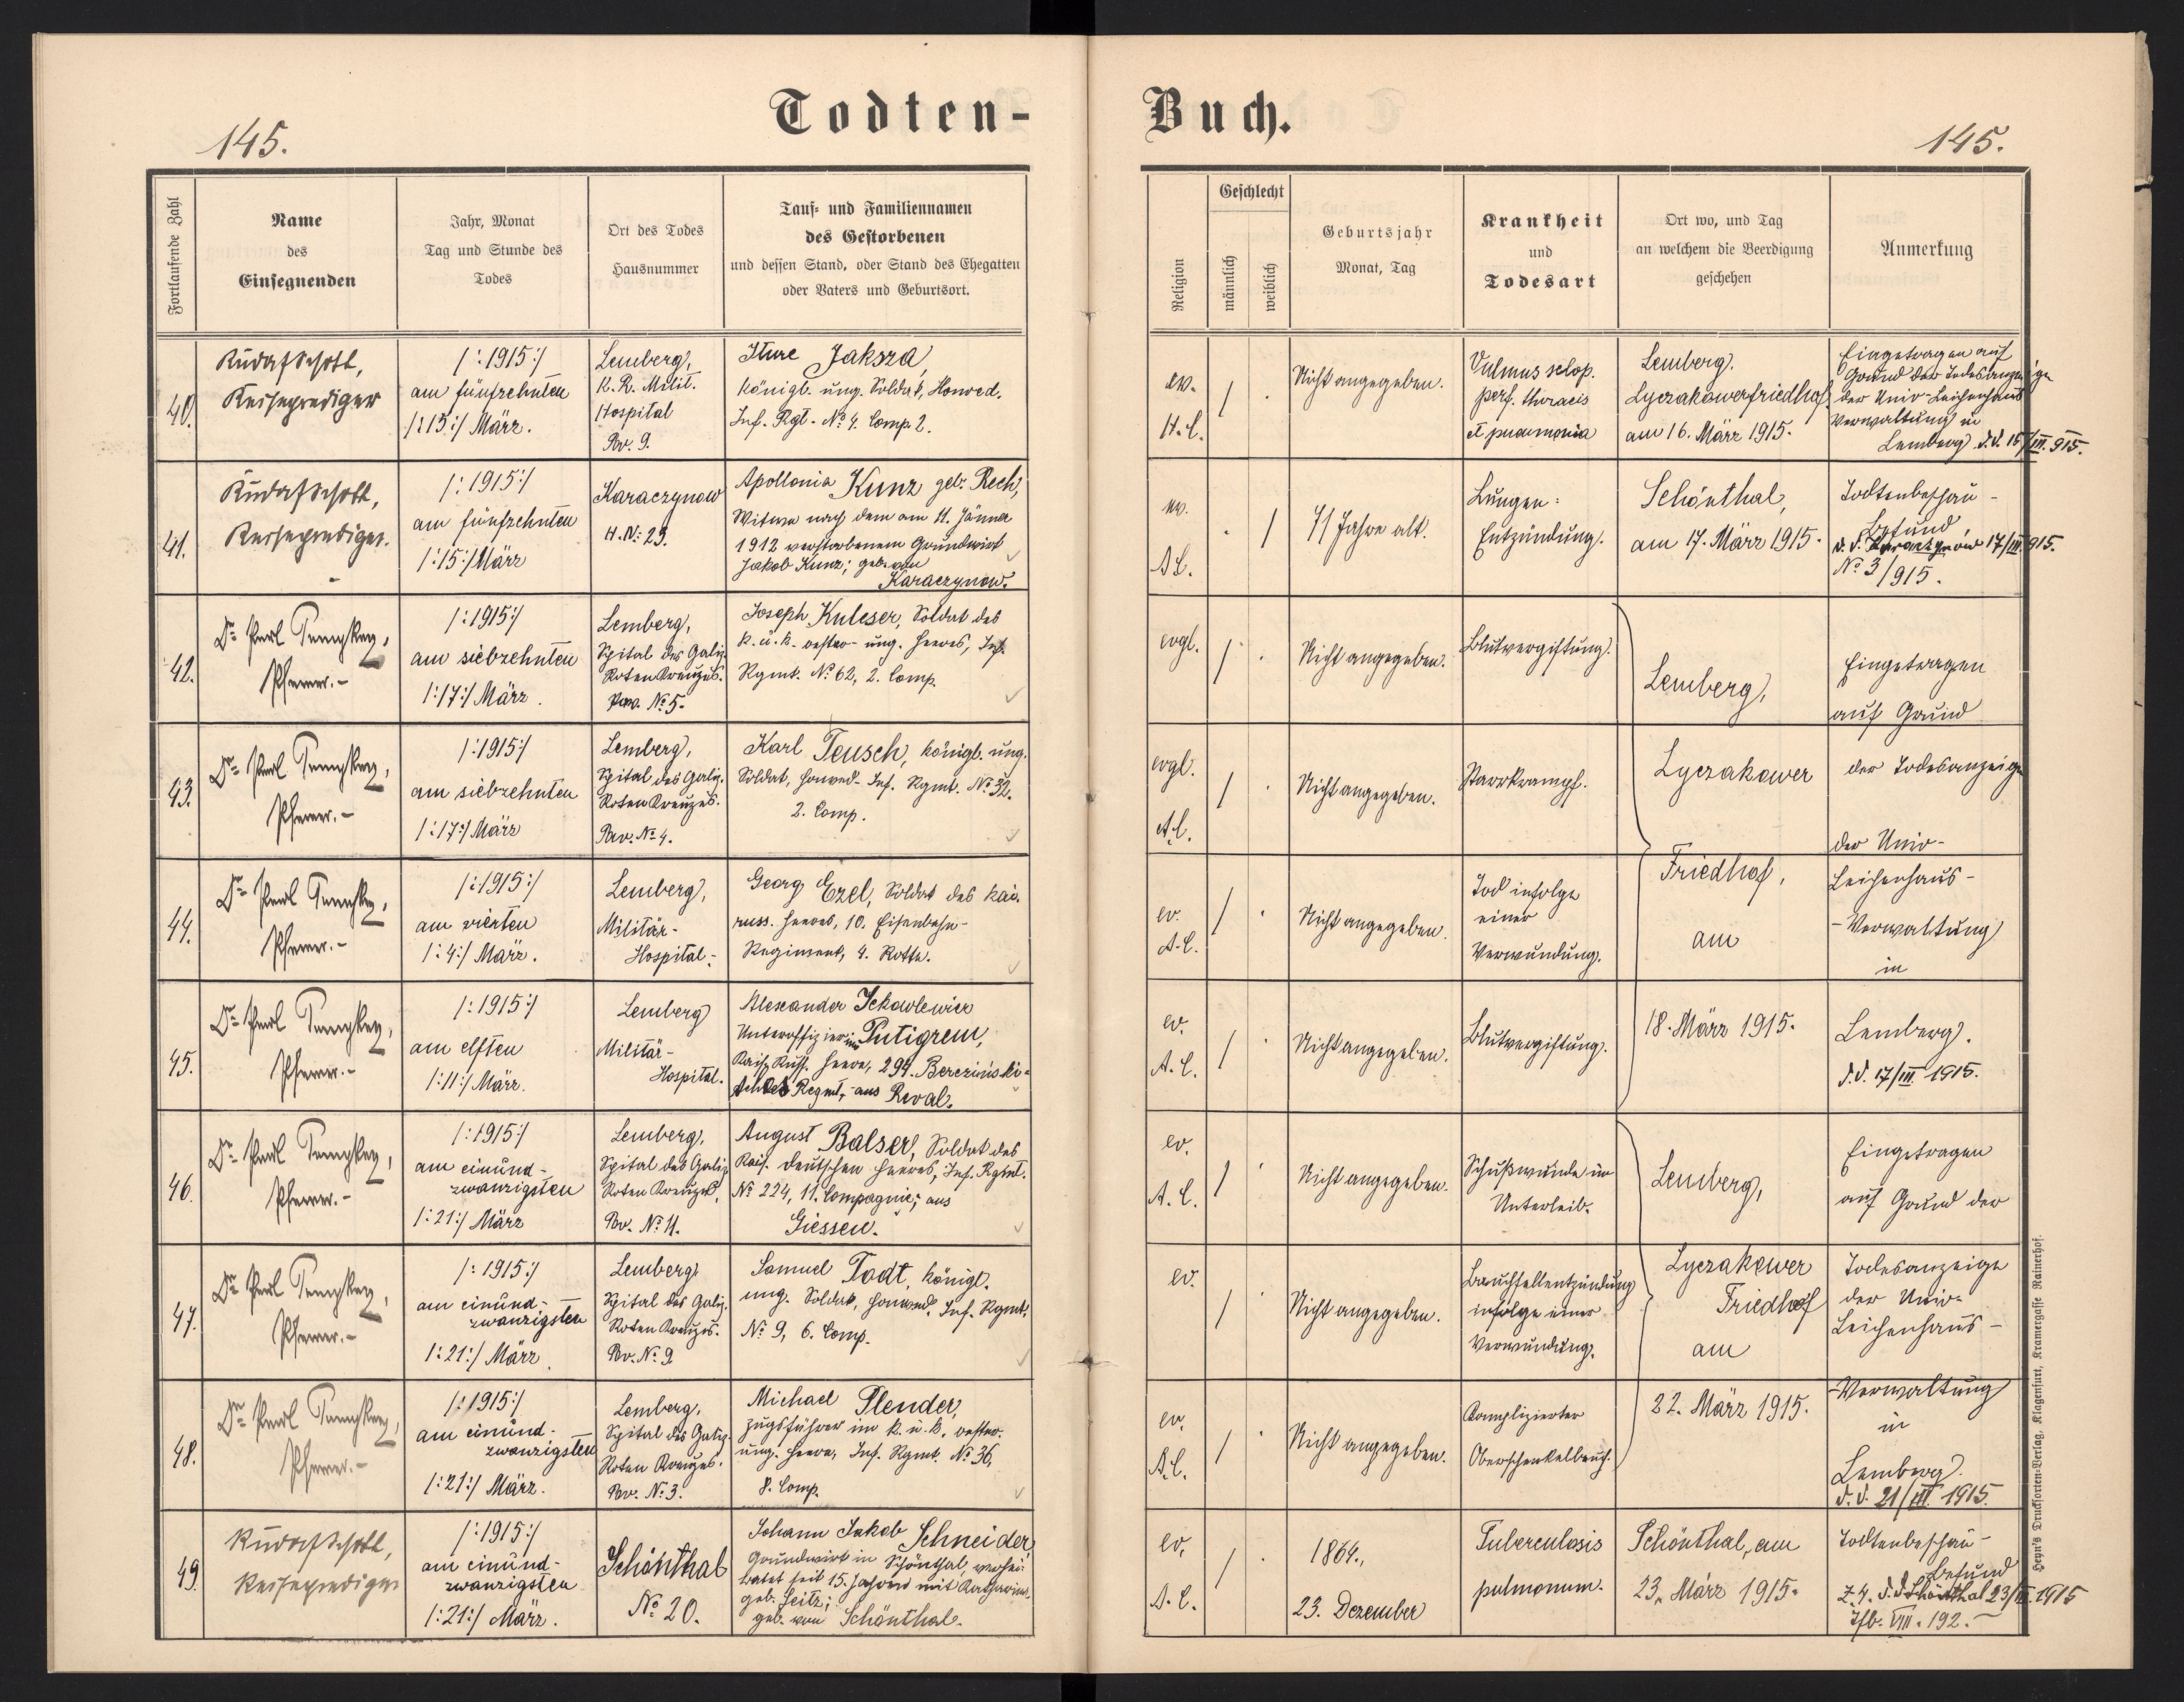 Todten-Buch.
145.
145.
Fortlaufende Zahl
Name
des
Einsegnenden
Jahr, Monat
Tag und Stunde des
Todes
Ort des Todes
Hausnummer
Tauf- und Familiennamen
des Gestorbenen
und dessen Stand, oder Stand des Ehegatten
oder Vaters und Geburtsort.
Religion
Geschlecht
männlich
weiblich
Geburtsjahr
Monat, Tag
Krankheit
und
Todesart
Ort wo, und Tag
an welchem die Beerdigung
geschehen
Anmerkung
40.
Rudolf Schott,
Reiseprediger
/:1915:/
am fünfzehnten
/:15:/ März.
Lemberg,
K. K. Milit.
Hospital
Pav. 9.
Iture Jaksza,
königl. ung. Soldat, Honved.
Inf. Rgt. No 4. Comp 2.
ev.
H.C.
/
Nicht angegeben.
Vulnus sclop.
perf. thoracis
et pneumonia
Lemberg.
Lyczakowerfriedhof
am 16. März 1915.
Eingetragen auf
Grund der Todesanzeige
der Univ-Leichenhaus
Verwaltung in
Lemberg d.d. 15/III. 915.
41.
Rudolf Schott,
Reiseprediger.
/:1915:/
am fünfzehnten
/:15:/ März
Karaczynow
H.N: 23.
Apollonia Kunz geb. Rech,
Witwe nach dem am 11. Jänner
1912 verstorbenem Grundwirt
Jakob Kunz; geb. von
Karaczynow.
ev.
A.C.
. /
71 Jahre alt.
Lungen=
Entzündung.
Schönthal,
am 17. März 1915.
Todtenbeschau-
Befund,
d.d. Karaczynów 17/III 915.
No 3/915.
42.
Dr. Pfarrer.-
/:1915:/
am siebzehnten
/:17:/ März.
Lemberg,
Spital des Galiz.
Roten Kreuzes.
Pav. No 5.
Joseph Kuleser, Soldat des
k. u. k. oester-ung. Heeres, Inf.
Rgmt. No 62, 2. Comp.
evgl.
/ .
Nicht angegeben.
Blutvergiftung.
Lemberg,
Eingetragen
auf Grund
43.
Dr. Pfarrer.-
/:1915:/
am siebzehnten
/:17:/ März
Lemberg,
Spital des Galiz.
Roten Kreuzes.
Pav. No 4.
Karl Teusch, königl. ung.
Soldat, Honved-Inf. Rgmt. No 32.
2. Comp.
evgl.
A.C.
/ .
Nicht angegeben.
Starrkrampf.
Lyczakower
der Todesanzeige
der Univ-
44.
Dr. Pfarrer.-
/:1915:/
am vierten
/:4:/ März.
Lemberg,
Militär-
Hospital-
Georg Ezel, Soldat des kai.
russ. Heeres, 10. Eisenbahn-
Regiment, 4. Rotte.
ev.
A.C.
/ .
Nicht angegeben.
Tod infolge
einer
Verwundung.
Friedhof,
am
Leichenhaus-
-Verwaltung
in
45.
Dr. Pfarrer.-
/:1915:/
am elften
/:11:/ März.
Lemberg
Militär-
Hospital.
Alexander Putigrem,
Unteroffizier im
Kais. Russ. Heere, 294.
Regmt, aus Reval.
ev.
A.C.
/ .
Nicht angegeben.
Blutvergiftung.
18. März 1915.
Lemberg.
d.d. 17/III 1915.
46.
Dr. Pfarrer.-
/:1915:/
am einund-
zwanzigsten
/:21:/ März
Lemberg,
Spital des Galiz
Roten Kreuzes,
Pav. No 11.
August Balser, Soldat des
Kais. deutschen Heeres, Inf. Rgmt.
No 224, 11. Compagnie; aus
Giessen.
ev.
A.C.
/ .
Nicht angegeben.
Schußwunde im
Unterleib.
Lemberg,
Eingetragen
auf Grund der
47.
Dr. Pfarrer.-
/:1915:/
am einund-
zwanzigsten
/:21:/ März.
Lemberg
Spital des Galiz.
Roten Kreuzes.
Pav. No 9
Samuel Todt, königl.
ung. Soldat, Honved. Inf. Rgmt.
No 9, 6. Comp.
ev.
/ .
Nicht angegeben.
Bauchfellentzündung
infolge einer
Verwundung.
Lyczakower
Friedhof
am
Todesanzeige
der Univ-
Leichenhaus-
48.
Dr. Pfarrer.-
/:1915:/
am einund-
zwanzigsten
/:21:/ März.
Lemberg,
Spital des Galiz.
Roten Kreuzes.
Pav. No 3.
Michael Plender,
Zugsführer im k. u. k. oester.
ung. Heere, Inf. Rgmt. No 36,
8. Comp.
ev.
A.C.
/ .
Nicht angegeben.
Komplizierter
Oberschenkelbruch.
22. März 1915.
-Verwaltung
in
Lemberg.
d.d. 21/III 1915.
49.
Rudolf Schott,
Reiseprediger
/:1915:/
am einund-
zwanzigsten
/:21:/ März.
Schönthal
No 20.
Johann Jakob Schneider,
Grundwirt in Schönthal, verhei-
ratet seit 15. Jahren mit Katharina,
geb. Seitz;
geb. von Schönthal.
ev.
A.C.
/ .
1864.,
23. Dezember
Tuberculosis
pulmonum.
Schönthal, am
23. März 1915.
Todtenbeschau-
Befund
Z.4. d.d. Schönthal 23/III. 1915
Tfb. VIII. 192.-
Heyn's Drucksorten-Verlag, Klagenfurt, Kramergasse Rainerhof.